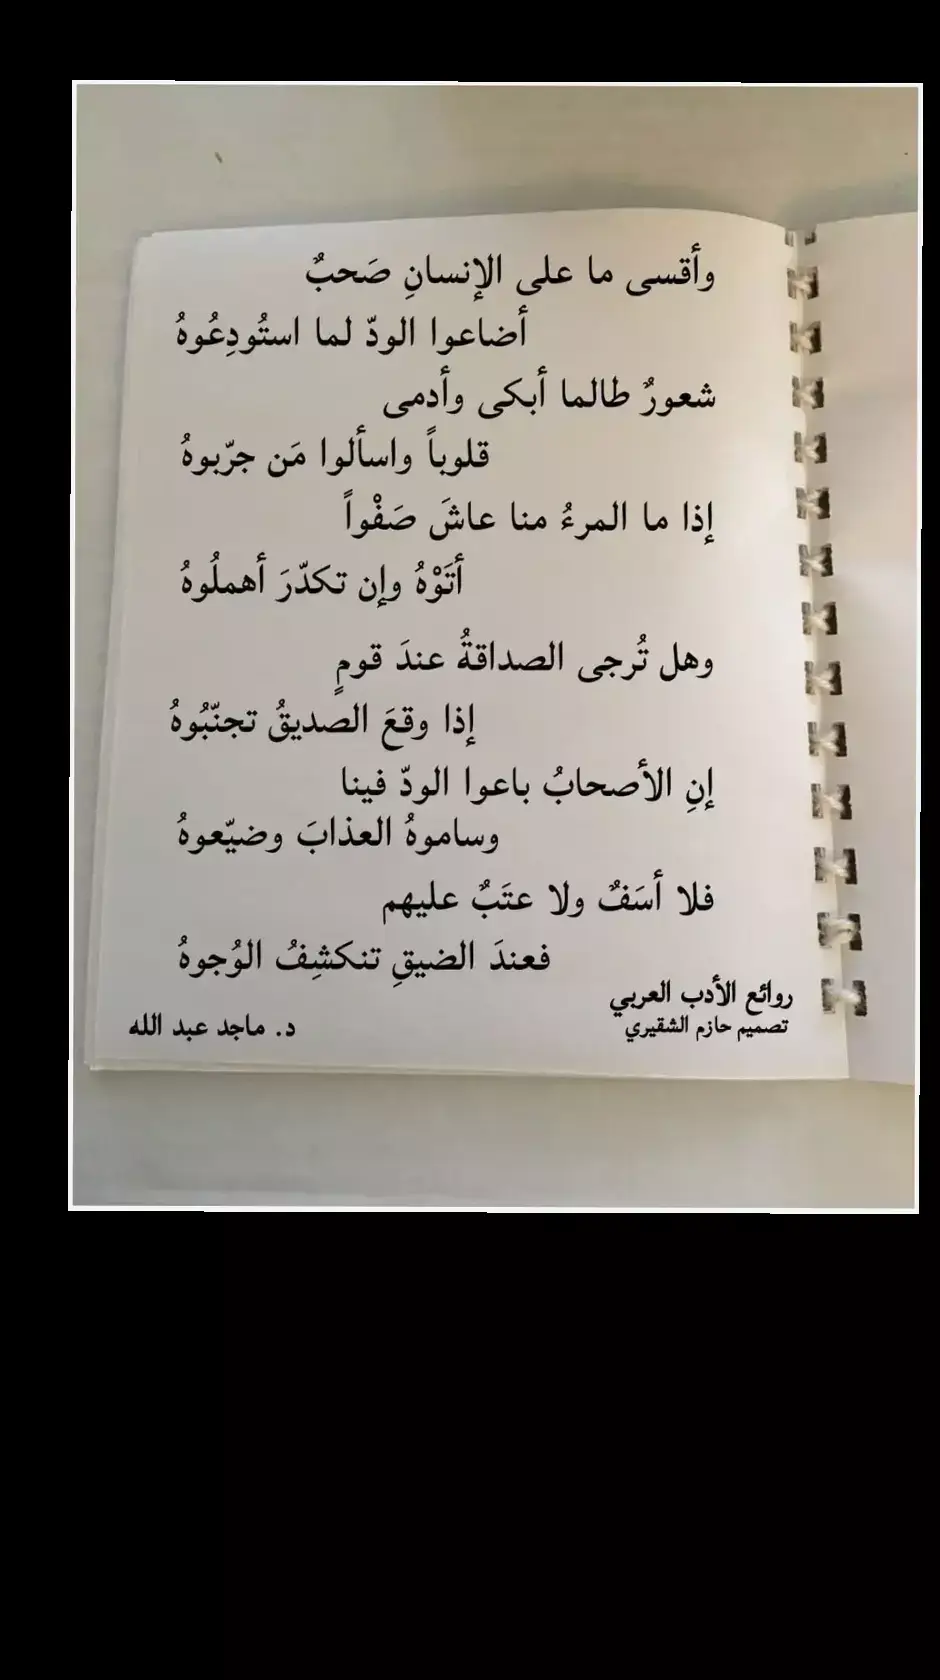 وأقسى ما على الإنسانِ صَحبٌ
أضاعوا الودّ لما استُودِعُوهُ
شعورٌ طالما أبكى وأدمى
قلوباً واسألوا مَن جرّبوهُ
إذا ما المرءُ منا عاشَ صَفْواً
أتَوْهُ وإن تكدّرَ أهملُوهُ
وهل تُرجى الصداقةُ عندَ قومٍ
إذا وقعَ الصديقُ تجنّبُوهُ
إنِ الأصحابُ باعوا الودّ فينا
وساموهُ العذابَ وضيّعوهُ
فلا أسَفٌ ولا عتَبٌ عليهم
فعندَ الضيقِ تنكشِفُ الوُجوهُ
روائع الأدب العربي
تصميم حازم الشقيري
د. ماجد عبد الله